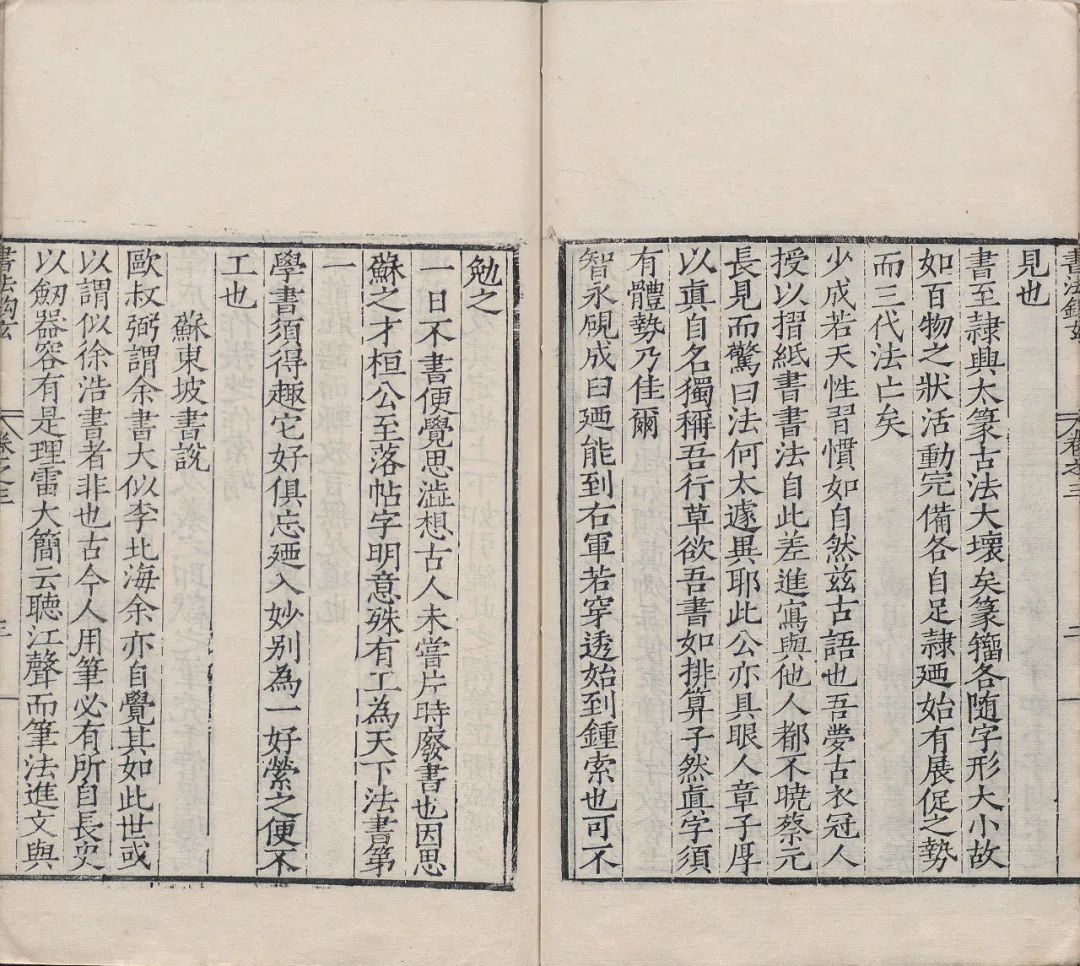 書法鉤玄 卷之三 二
見也
書至隷興大篆古法大壞矣篆籀各隨字形大小故
如百物之狀活動完備各自足隷廼始有展促之勢
而三代法亡矣
少成若天性習慣如自然兹古語也吾夢古衣冠人
授以摺紙書書法自此差進寫與他人都不曉蔡元
長見而驚曰法何太遽異耶此公亦具眼人章子厚
以眞自名獨稱吾行草欲吾書如排算子然眞字須
有體勢乃佳爾
智永硯成臼廼能到右軍若穿透始到鍾索也可不
勉之
一日不書便覺思澁想古人未嘗片時廢書也因思
蘇之才桓公至落帖字明意殊有工為天下法書第
一
學書須得趣它好俱忘廼入妙别為一好縈之便不
工也
蘇東坡書説
歐叔弼謂余書大似李北海余亦自覺其如此世或
以謂似徐浩書者非也古今人用筆必有所自長史
以劒器容有是理雷大簡云聽江聲而筆法進文與
書法鉤玄 卷之三 三